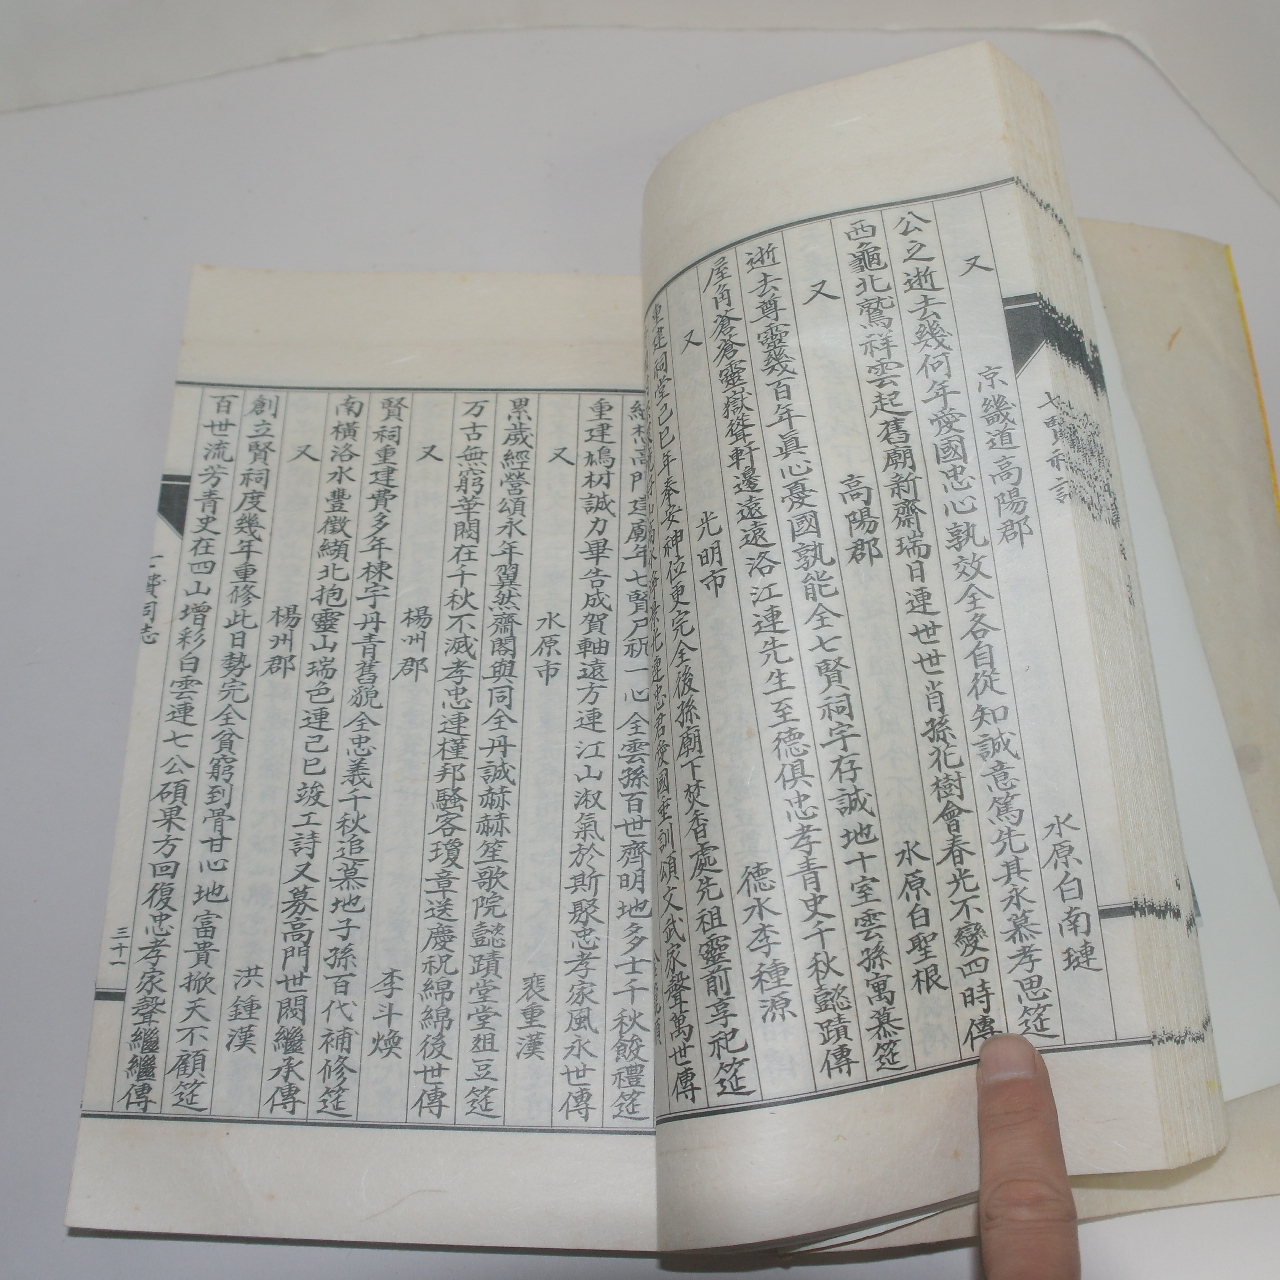 又 京畿道高陽郡 水原白南璉
公之逝去幾何年愛國忠心孰效全各自從知誠意篤先其永慕孝思筵
西龜北鷲祥雲起舊廟新齋瑞日連世世肖孫花樹會春光不變四時傳
又 高陽郡 水原白聖根
逝去尊靈幾百年眞心憂國孰能全七賢祠宇存誠地十室雲孫寓慕筵
屋角蒼蒼靈嶽聳軒邊遠遠洛江連先生至德俱忠孝青史千秋懿蹟傳
又 光明市 德水李種源
重建祠堂己巳年奉安神位更完全後孫廟下焚香處先祖靈前享祀筵
連忠君愛國垂訓頌文武家聲萬世傳
高門建廟年七賢尸祝一心全雲孫百世齊明地多士千秋餕禮筵
重建鳩材誠力畢告成賀軸遠方連江山淑氣於斯聚忠孝家風永世傳
又 水原市 裵重漢
累歲經營頌永年翼然齋閣與同全丹誠赫赫笙歌院懿蹟堂堂俎豆筵
万古無窮華閥在千秋不滅孝忠連槿邦騷客瓊章送慶祝綿綿後世傳
又 楊州郡 李斗煥
賢祠重建費多年棟宇丹青舊貌全忠義千秋追慕地子孫百代補修筵
南橫洛水豐徵纈北抱靈山瑞色連己巳竣工詩又募高門世閥繼承傳
又 楊州郡 洪鍾漢
創立賢祠度幾年重修此日勢完全貧窮到骨甘心地富貴掀天不顧筵
百世流芳青史在四山增彩白雲連七公碩果方回復忠孝家聲繼繼傳
賢祠志
三十一